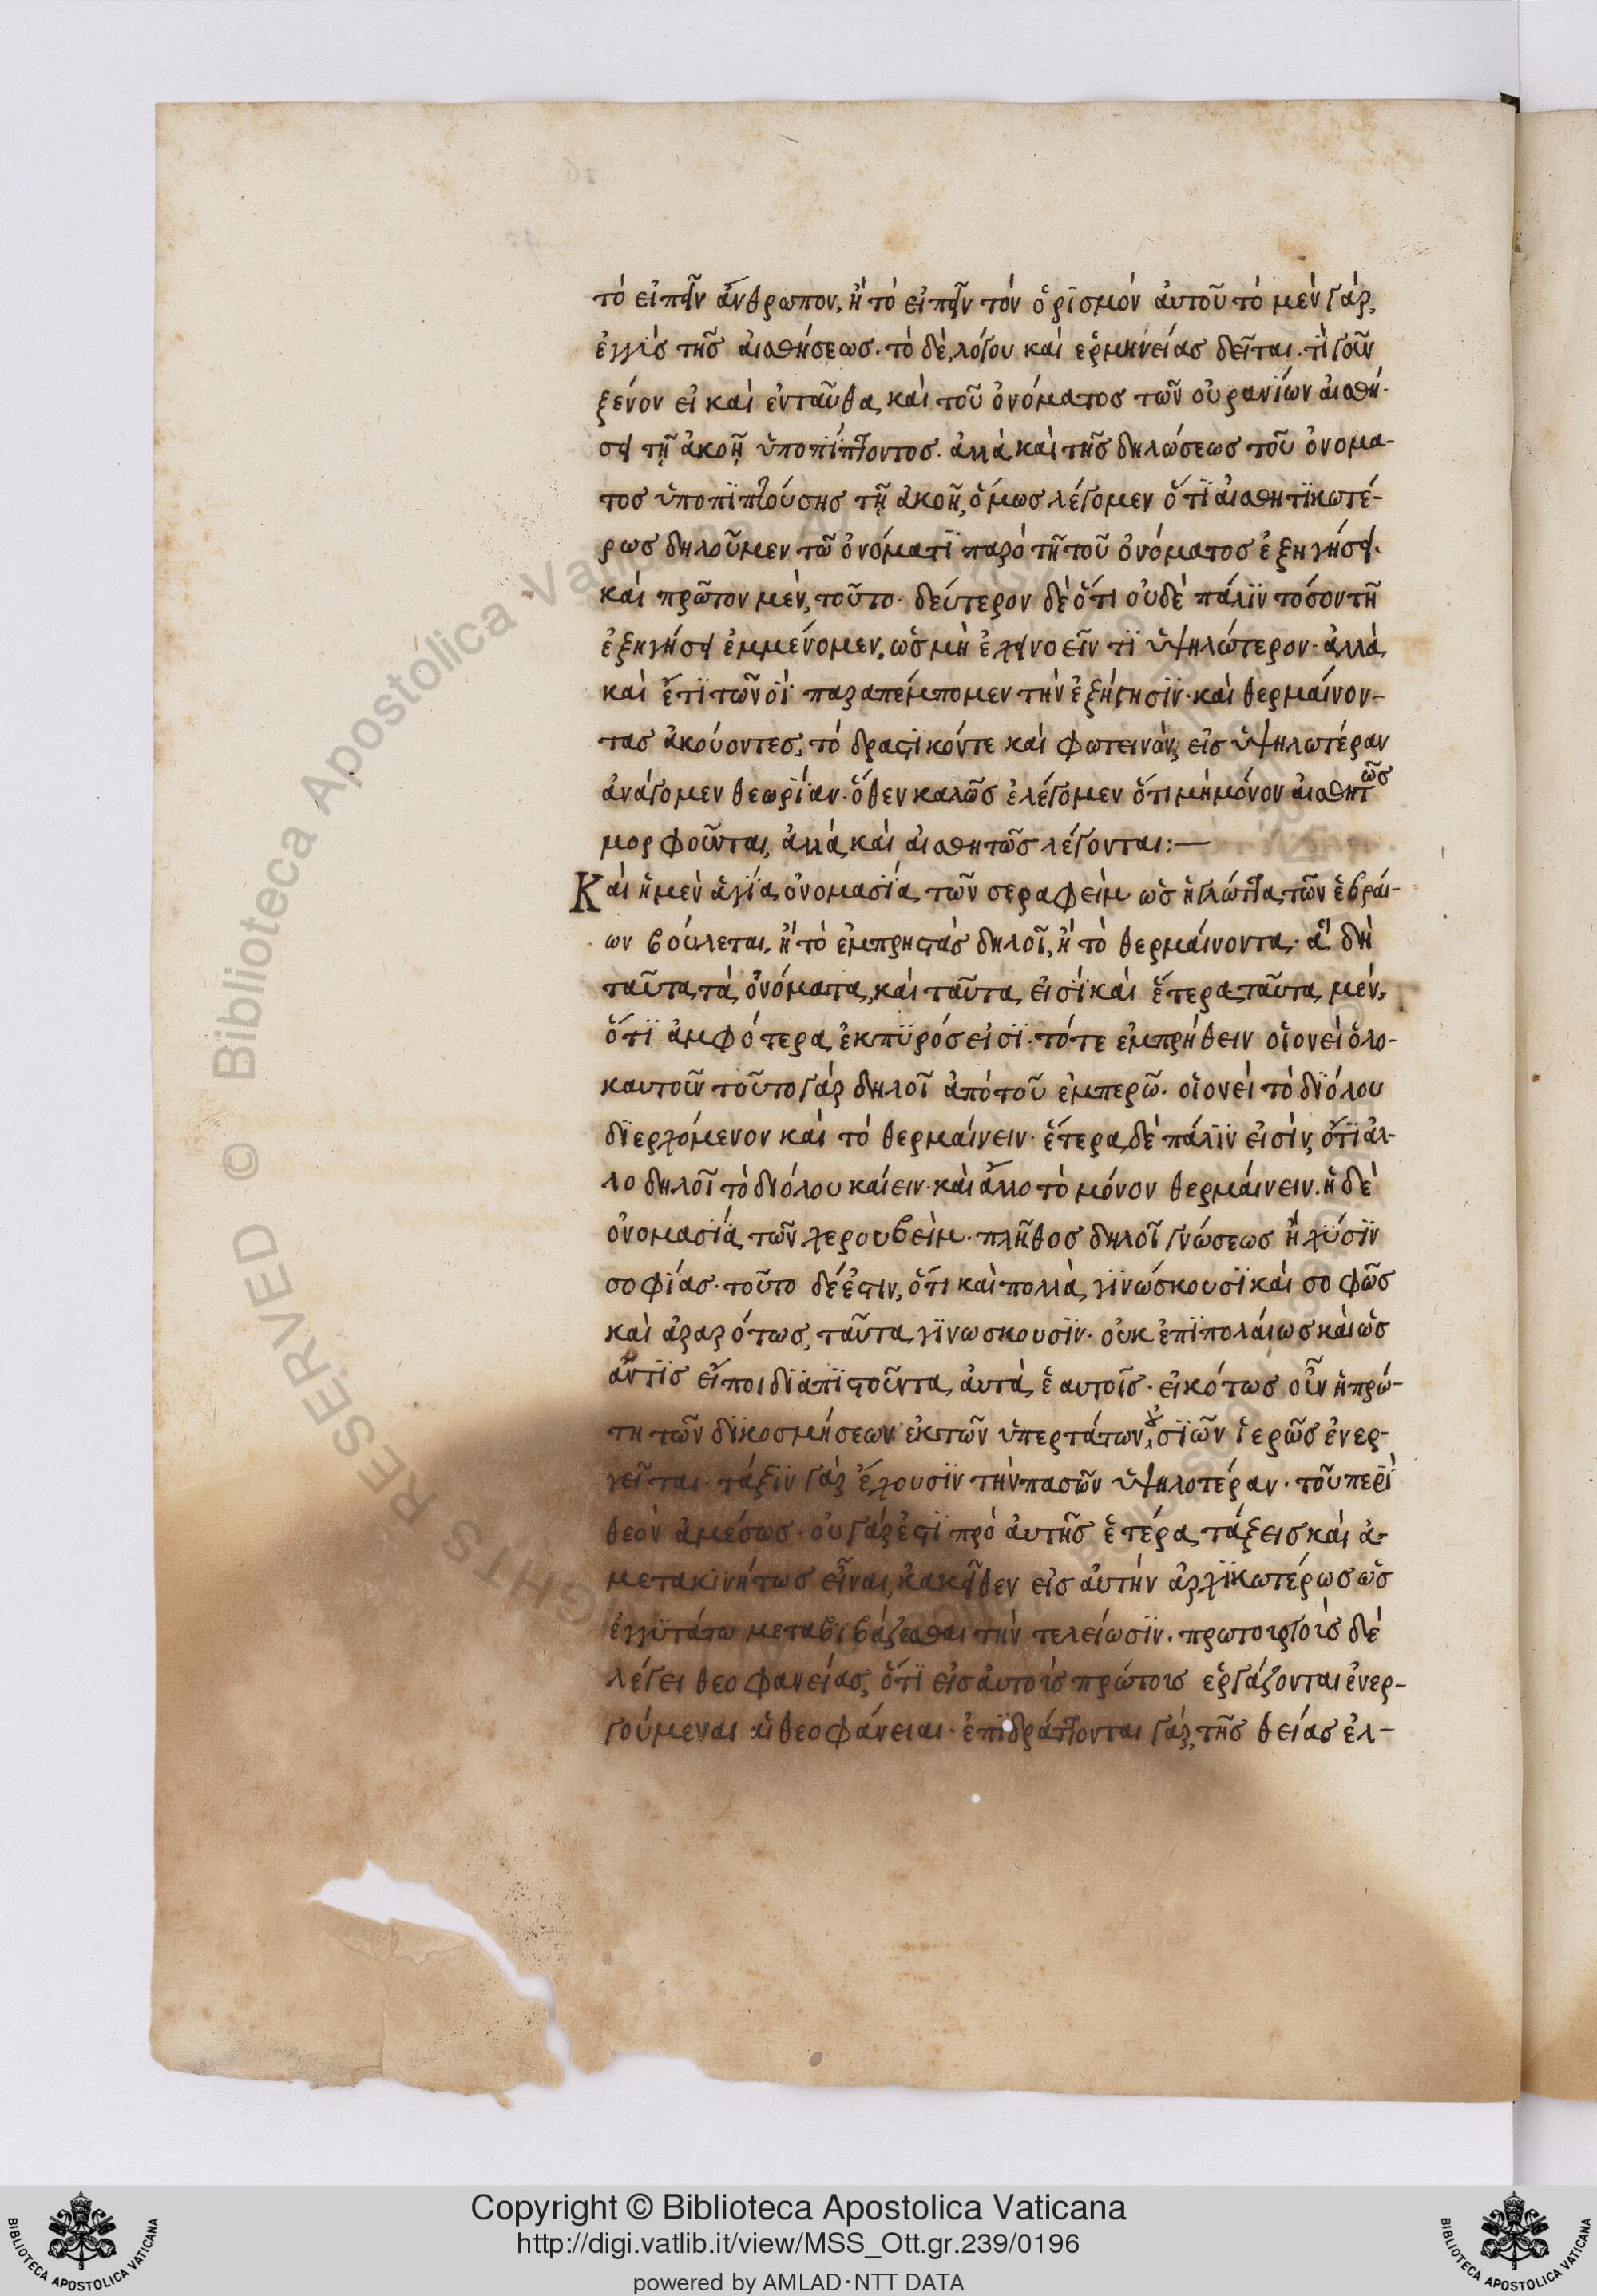 τὸ εἰπεῖν ἄνθρωπον, ἢ τὸ εἰπεῖν τὸν ὁρισμὸν αὐτοῦ τὸ μὲν γὰρ,
ἐγγὺς τῆς αἰσθήσεως. τὸ δὲ, λόγου καὶ ἑρμηνείας δεῖται. τί γοῦν
ξένον εἰ καὶ ἐνταῦθα καὶ τοῦ ὀνόματος τῶν οὐρανίων αἰσθή-
σει τῇ ἀκοῇ ὑποπίπτοντος. ἀλλὰ καὶ τῆς δηλώσεως τοῦ ὀνομα-
τος ὑποπιπτούσης τῇ ἀκοῇ, ὅμως λέγομεν ὅτι αἰσθητικωτέ-
ρως δηλοῦμεν τῶ ὀνόματι παρὸ τῆ τοῦ ὀνόματος ἐξηγήσει.
καὶ πρῶτον μὲν, τοῦτο· δεύτερον δὲ ὅτι οὐδὲ πάλιν τόσον τῆ
ἐξηγήσει ἐμμένομεν, ὡς μὴ ἐχειν οεῖν τι ὑψηλώτερον· ἀλλὰ
καὶ ἔτι τῶν οἱ παραπέμπομεν τὴν ἐξήγησιν· καὶ θερμαίνον-
τας ἀκούοντες, τὸ δραστικόν τε καὶ φωτεινὸν, εἰς ὑψηλωτέραν
ἀνάγομεν θεωρίαν· ὅθεν καλῶς ἐλέγομεν ὅτι μὴ μόνον αἰσθητῶς
μορφοῦνται, ἀλλὰ καὶ αἰσθητῶς λέγονται:—
Καὶ ἡ μὲν ἁγία ὀνομασία τῶν σεραφεὶμ ὡς ἡ γλῶττα τῶν ἑβραί-
ων βούλεται, ἢ τὸ ἐμπρηστὰς δηλοῖ, ἢ τὸ θερμαίνοντα· ἃ δὴ
ταῦτα τὰ ὀνόματα, καὶ ταῦτα εἰσὶ καὶ ἕτερα ταῦτα μὲν,
ὅτι ἀμφότερα ἐκ πυρός εἰσι· τό τε ἐμπρήθειν οἱονεὶ ὁλο-
καυτοῦν τοῦτο γὰρ δηλοῖ ἀπὸ τοῦ ἐμπερῶ. οἱονεὶ τὸ διόλου
διερχόμενον καὶ τὸ θερμαίνειν· ἕτερα δὲ πάλιν εἰσὶν, ὅτι ἀλ-
λο δηλοῖ τὸ διόλου καίειν· καὶ ἄλλο τὸ μόνον θερμαίνειν. ἡ δὲ
ὀνομασία τῶν χερουβεὶμ· πλῆθος δηλοῖ γνώσεως ἢ χύσιν
σοφίας· τοῦτο δέ ἐστιν, ὅτι καὶ πολλὰ γινώσκουσι καὶ σοφῶς
καὶ ἀραρότως, ταῦτα γινωσκουσιν· οὐκ ἐπιπολαίως καὶ ὡς
ἄν τις εἴποι διαπιστοῦντα αὐτὰ ἑαυτοῖς· εἰκότως οὖν ἡ πρώ-
τη τῶν διακοσμήσεων ἐκ τῶν ὑπερτάτων οὐσιῶν ἱερῶς ἐνερ-
γεῖται· τάξιν γὰρ ἔχουσιν τὴν πασῶν ὑψηλοτέραν· τοῦ περὶ
θεὸν ἀμέσως· οὐ γάρ ἐστι πρὸ αὐτῆς ἑτέρα τάξεις καὶ ἀ-
μετακινήτως εἶναι, κακεῖθεν εἰς αὐτὴν ἀρχικωτέρως ὡς
ἐγγυτάτω μεταβιβάζεσθαι τὴν τελείωσιν. πρωτουργοὺς δὲ
λέγει θεοφανείας, ὅτι εἰς αὐτοὺς πρώτοις ἐργάζονται ἐνερ-
γούμεναι αἱ θεοφάνειαι· ἐπιδράττονται γὰρ, τῆς θείας ἐλ-
Copyright © Biblioteca Apostolica Vaticana
http://digi.vatlib.it/view/MSS_Ott.gr.239/0196
powered by AMLAD·NTT DATA
BIBLIOTECA APOSTOLICA VATICANA
BIBLIOTECA APOSTOLICA VATICANA